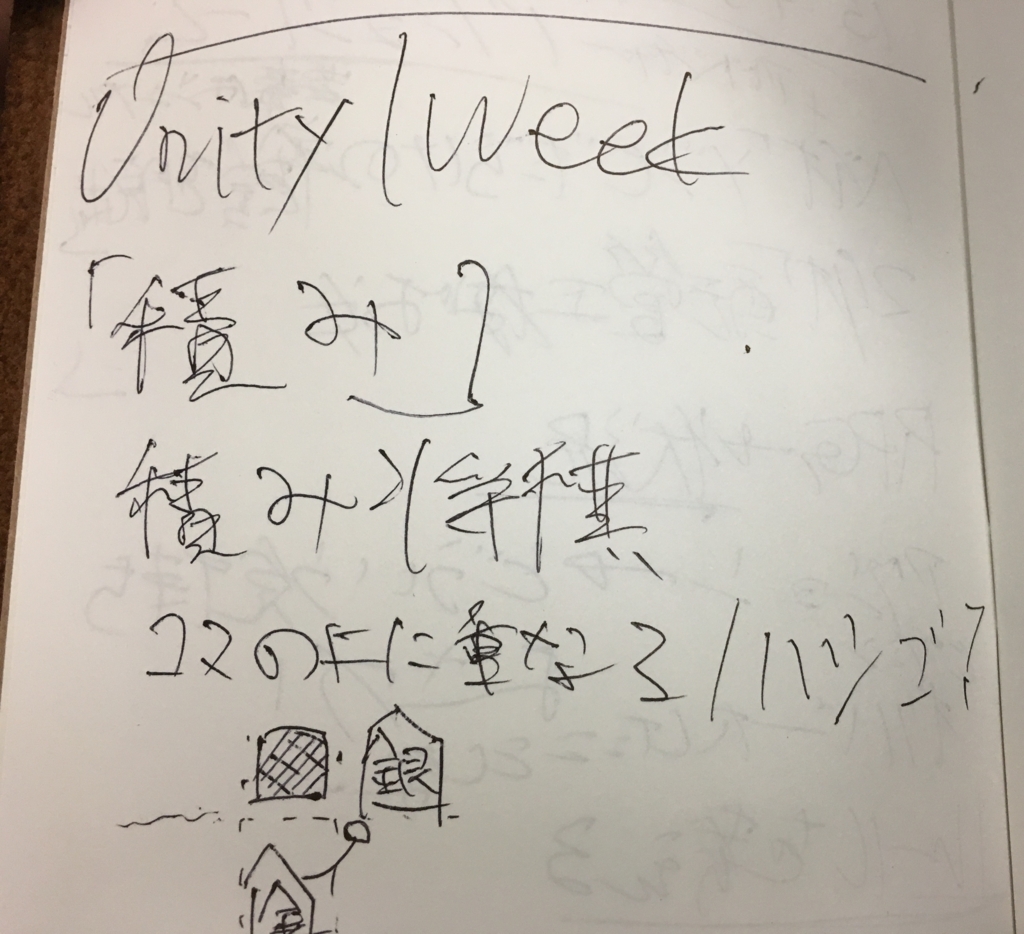 Unity 1week
「積み」
積み×将棋
コマの上に重なる/ハシゴ?
銀
金